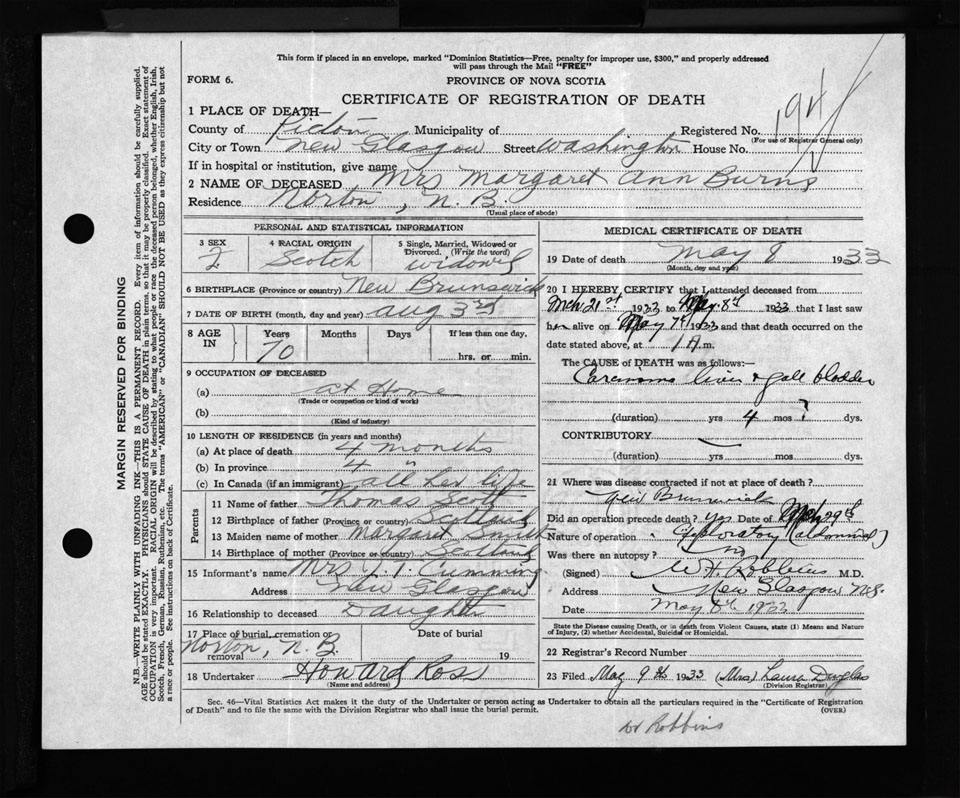 This form if placed in an envelope, marked "Dominion Statistics—Free, penalty for improper use, $300," and properly addressed
will pass through the Mail "FREE"
FORM 6.
PROVINCE OF NOVA SCOTIA
CERTIFICATE OF REGISTRATION OF DEATH
1 PLACE OF DEATH—
County of Pictou Municipality of Registered No.
(For use of Registrar General only)
City or Town New Glasgow Street Washington House No.
If in hospital or institution, give name
2 NAME OF DECEASED Mrs Margaret Ann Burns
Residence Norton, N.B.
(Usual place of abode)
PERSONAL AND STATISTICAL INFORMATION
3 SEX
4 RACIAL ORIGIN Scotch
5 Single, Married, Widowed or Divorced. (Write the word) widowed
6 BIRTHPLACE (Province or country) New Brunswick
7 DATE OF BIRTH (month, day and year) Aug 3rd
8 AGE IN Years Months Days If less than one day,
70 hrs. or min.
9 OCCUPATION OF DECEASED
(a) at Home
(Trade or occupation or kind of work)
(b)
(Kind of industry)
10 LENGTH OF RESIDENCE (in years and months)
(a) At place of death 4 months
(b) In province 4 "
(c) In Canada (if an immigrant) all her life
Parents
11 Name of father Thomas Scott
12 Birthplace of father (Province or country) Scotland
13 Maiden name of mother Margaret Smith
14 Birthplace of mother (Province or country) Scotland
15 Informant's name Mrs Cumming
Address New Glasgow
16 Relationship to deceased Daughter
17 Place of burial, cremation or removal Date of burial
Norton, N.B. 19
18 Undertaker Howard Ross
(Name and address)
MEDICAL CERTIFICATE OF DEATH
19 Date of death May 8 1933
(Month, day and year)
20 I HEREBY CERTIFY that I attended deceased from
Mch 21st 1933 to May 8th 1933 that I last saw
her alive on May 7th 1933 and that death occurred on
date stated above, at 1 A m.
The CAUSE of DEATH was as follows:—
Carcinoma liver & gall bladder
(duration) yrs 4 mos ? dys.
CONTRIBUTORY —
(duration) yrs mos dys.
21 Where was disease contracted if not at place of death?
New Brunswick
Did an operation precede death? yes Date of Mch 29th
Nature of operation Exploratory (abdominal)
Was there an autopsy? no
(Signed) W.H. Robbins M.D.
Address New Glasgow N.S.
Date May 8th 1933
State the Disease causing Death, or in death from Violent Causes, state (1) Means and
Nature of Injury, (2) whether Accidental, Suicidal or Homicidal.
22 Registrar's Record Number
23 Filed May 9th 1933 (Mrs) Laura Douglas
(Division Registrar)
Sec. 46—Vital Statistics Act makes it the duty of the Undertaker or person acting as Undertaker to obtain all the particulars required in the "Certificate of Registration
of Death" and to file the same with the Division Registrar who shall issue the burial permit. (OVER)
Dr Robbins
MARGIN RESERVED FOR BINDING
N.B.—WRITE PLAINLY WITH UNFADING INK—THIS IS A PERMANENT RECORD. Every item of information should be carefully supplied.
AGE should be stated EXACTLY. PHYSICIANS should STATE CAUSE OF DEATH in plain terms, so that it may be properly classified. Exact statement of
OCCUPATION is very important. RACIAL ORIGIN will be described by stating to what people or race the deceased person belonged, whether English, Irish,
Scotch, French, German, Russian, Ruthenian, etc. The terms "AMERICAN" or "CANADIAN" SHOULD NOT BE USED as they express citizenship but not
a race or people. See instructions on back of Certificate.